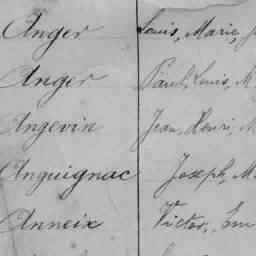 Anger Louis, Marie, J
Anger Paul, Louis, M
Angevin Jean, Henri, M
Anguignac Joseph, M
Anneix Victor, Em